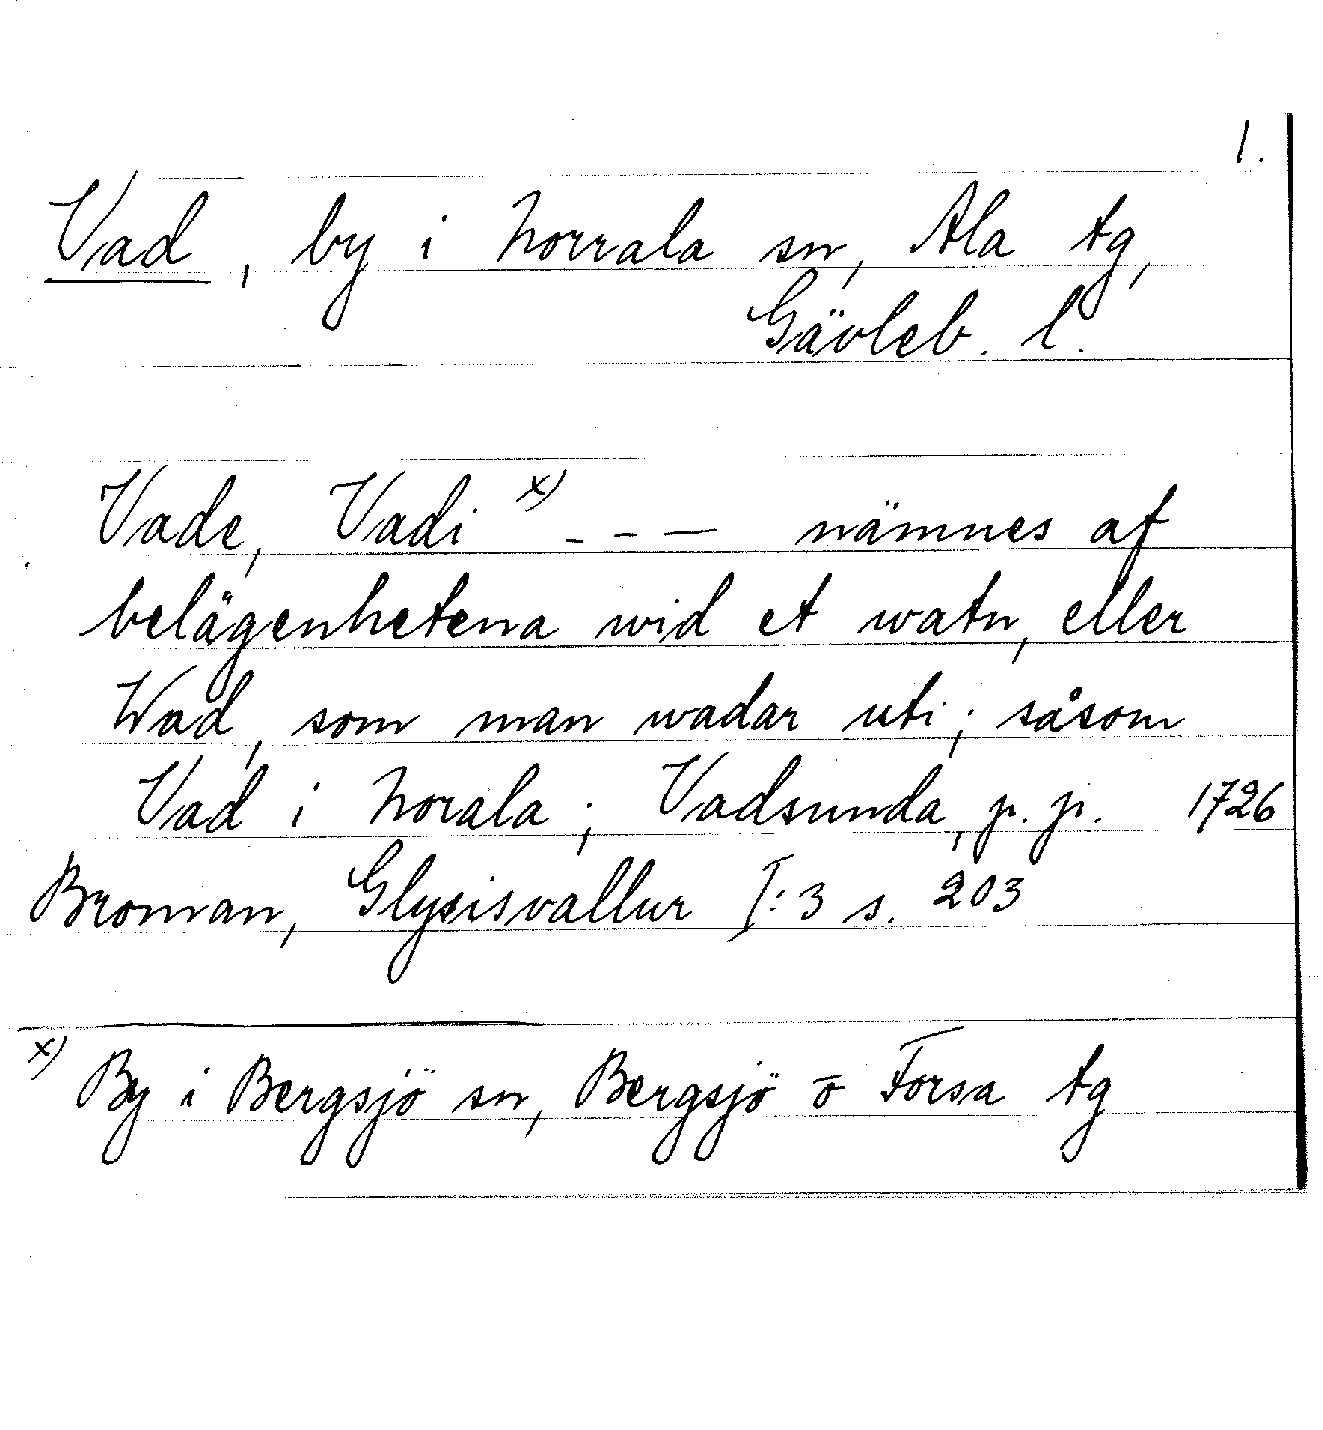 1.
Vad, by i Norrala sn, Ala tg,
Gävleb. l.
Vade, Vadi x) - - — nämnes af
belägenhetena wid et watn, eller
Wad, som man wadar uti; såsom
Vad i Norala; Vadsunda, p. p. 1726
Broman, Glysisvallur I:3 s. 203
x) By i Bergsjö sn, Bergsjö o Forsa tg